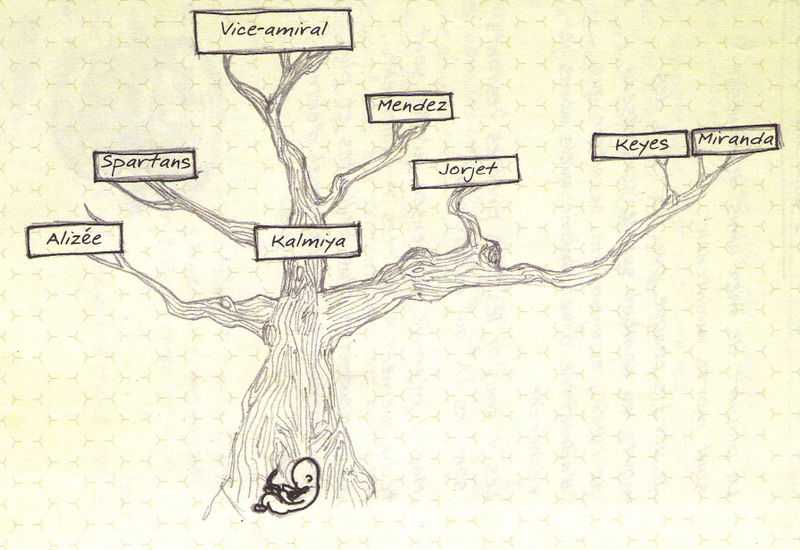 Vice-amiral
Mendez
Spartans
Jorjet
Keyes
Miranda
Alizée
Kalmiya